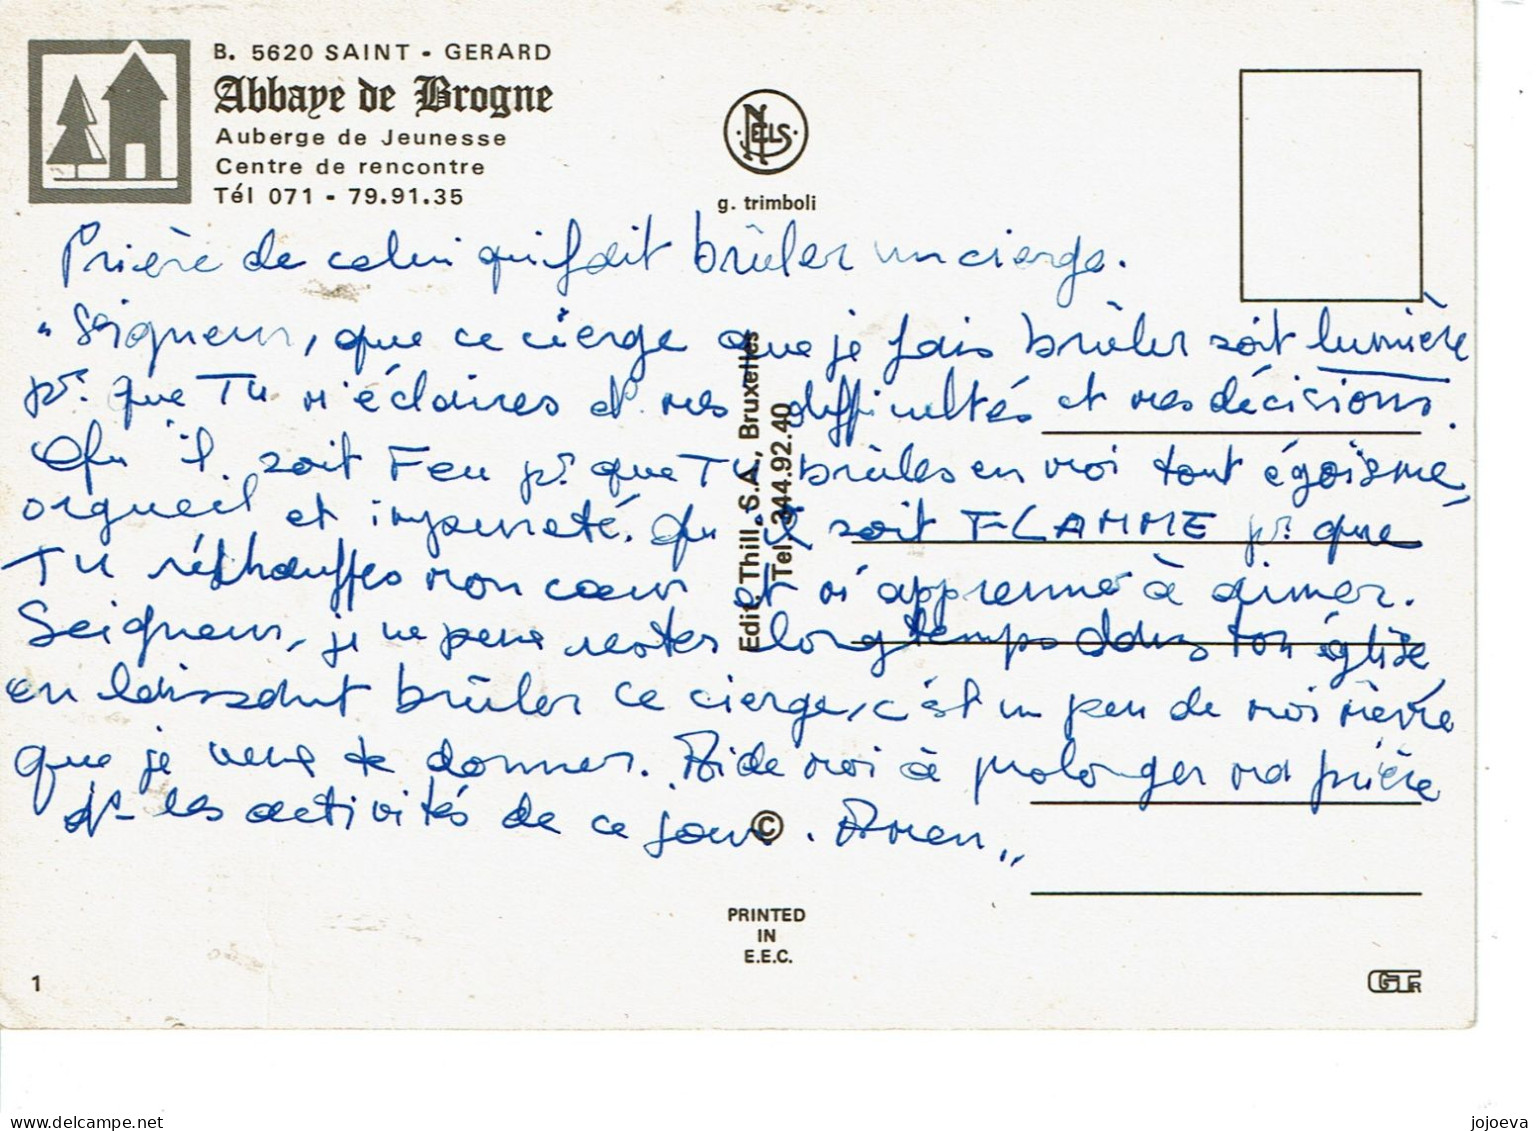 B. 5620 SAINT - GERARD
Abbaye de Brogne
Auberge de Jeunesse
Centre de rencontre
Tél 071 - 79.91.35
NELS
g. trimboli
Prière de celui qui fait brûler un cierge.
"Seigneur, que ce cierge que je fais brûler soit lumière
pr que Tu m'éclaires ds mes difficultés et mes décisions.
Qu'il soit Feu pr que Tu brûles en moi tout égoïsme,
orgueil et impureté. Qu'il soit FLAMME pr que
Tu réchauffes mon cœur et m'apprenne à aimer.
Seigneur, je ne peux rester longtemps dans ton église,
en laissant brûler ce cierge, c'est un peu de moi même
que je veux te donner. Aide moi à prolonger ma prière
ds les activités de ce jour. Amen"
Edit. Thill, S.A., Bruxelles
Tel. 344.92.40
©
PRINTED
IN
E.E.C.
1
GTR
delcampe.net
jojoeva